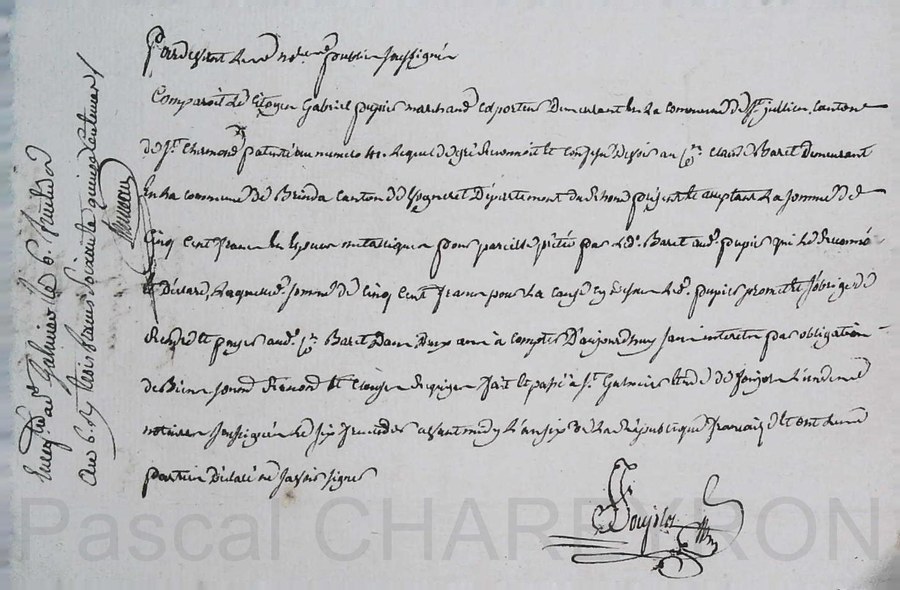 Pardevant le no.re public soussigné
Comparoit le Citoyen Gabriel pupier marchand Colporteur Demeurant en La Commune de St. jullien Canton
de St. Chamond patenté au numero 41 Lequel de gré Reconnoit et Confesse devoir au C.en Claude Baret Demeurant
En La Commune de Brinda Canton de Departement du Rhone present et aceptant La Somme de
Cinq Cent francs En Espece metallique pour pareille pretés par Led. Baret aud. pupier qui Le Reconnoi
et Declare, Laquelle d. Somme de Cinq Cent francs pour La Cause Cy dessus Led. pupier promet et s'oblige de
Rendre et payer aud. C.en Baret Dans deux ans à Compter D'aujourdhuy sans interetz par obligation
de Biens Soumission Renonciation et Clauses Requises fait et passé à St. Galmier Etude de Soujol L'un des
notaires soussigné Le six fructidor avant midy L'an six de La Republique francaise et ont Lesd.
parties Declaré ne savoir signer
Soujol no.re
Enreg.tré a St. Galmier le 6 fructidor
an 6. Reçu trois francs soixante quinze Centimes
Pascal CHAREYRON